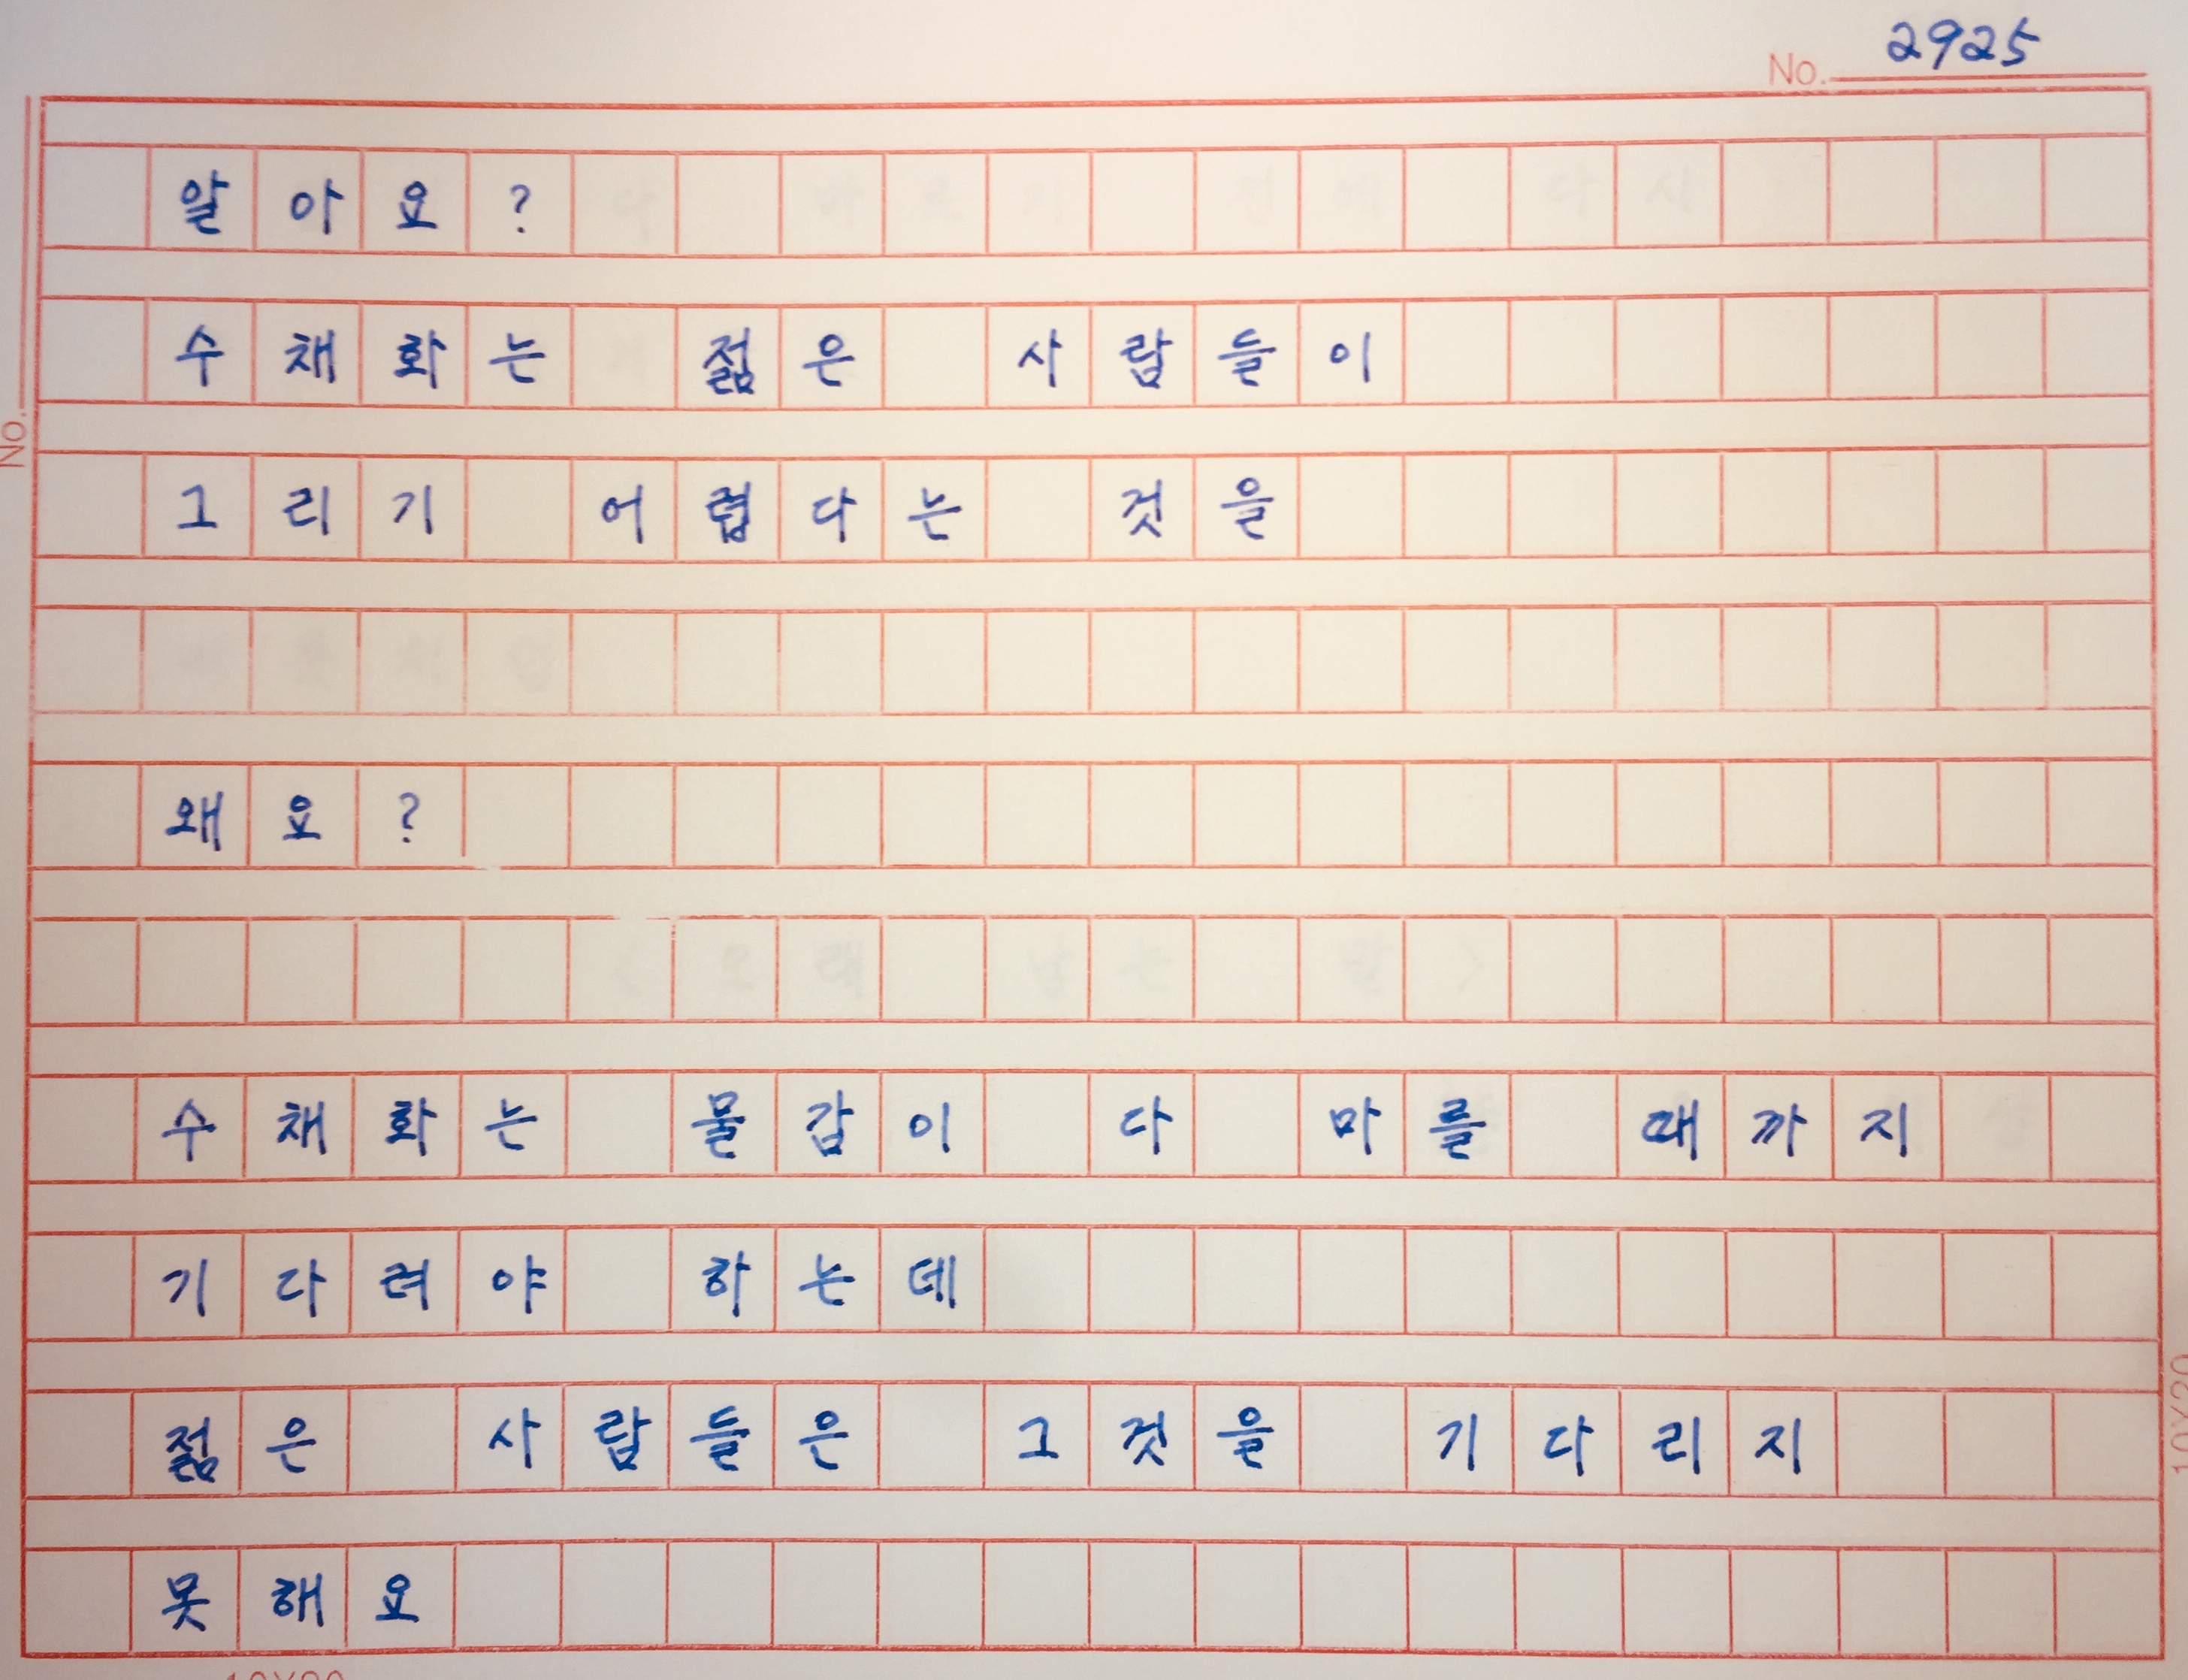 No. 2925
알아요?
수채화는 젊은 사람들이
그리기 어렵다는 것을
No.
왜요?
수채화는 물감이 다 마를 때까지
기다려야 하는데
젊은 사람들은 그것을 기다리지
못해요